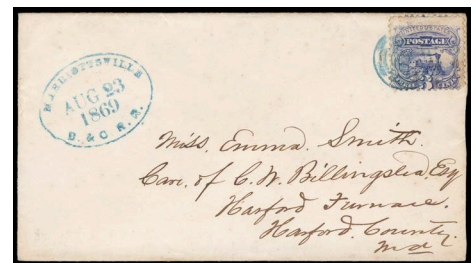 MARRIOTTSVILLE
AUG 23
1869
B. & O R. R.
POSTAGE
Miss. Emma. Smith.
Care. of C. W. Billingslea. Esq
Harford Furnace.
Harford. County.
Md